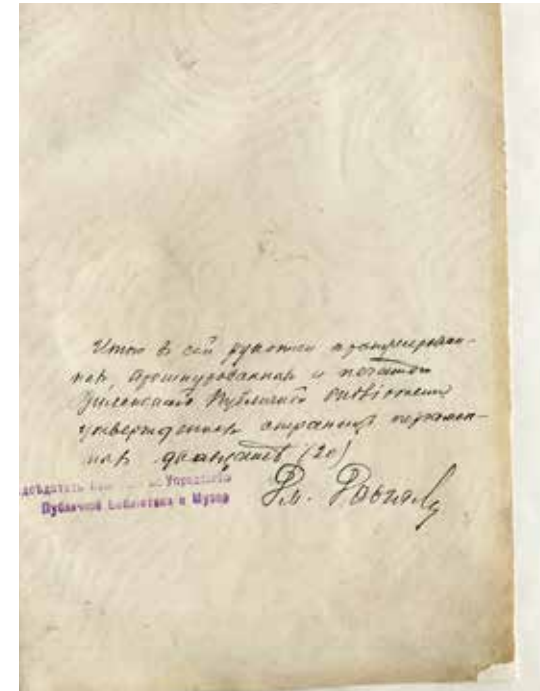 Итого в сей рукописи пронумерован-
ных, прошнурованных и печатью
Виленской Публичной библіотеки
утвержденныхъ страницъ пергамен-
тныхъ двадцать (20)
Управленія
Публичной Библіотеки и Музея